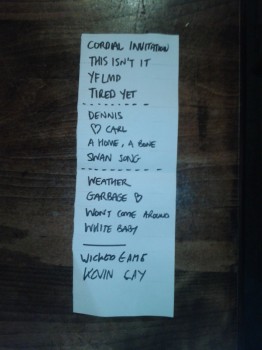 CORDIAL INVITATION
THIS ISN'T IT
YFLMP
TIRED YET
DENNIS
♡ CARL
A HOME, A BONE
SWAN SONG
WEATHER
GARBAGE ♡
WON'T COME AROUND
WHITE BABY
WICKED GAME
KOVIN GAY